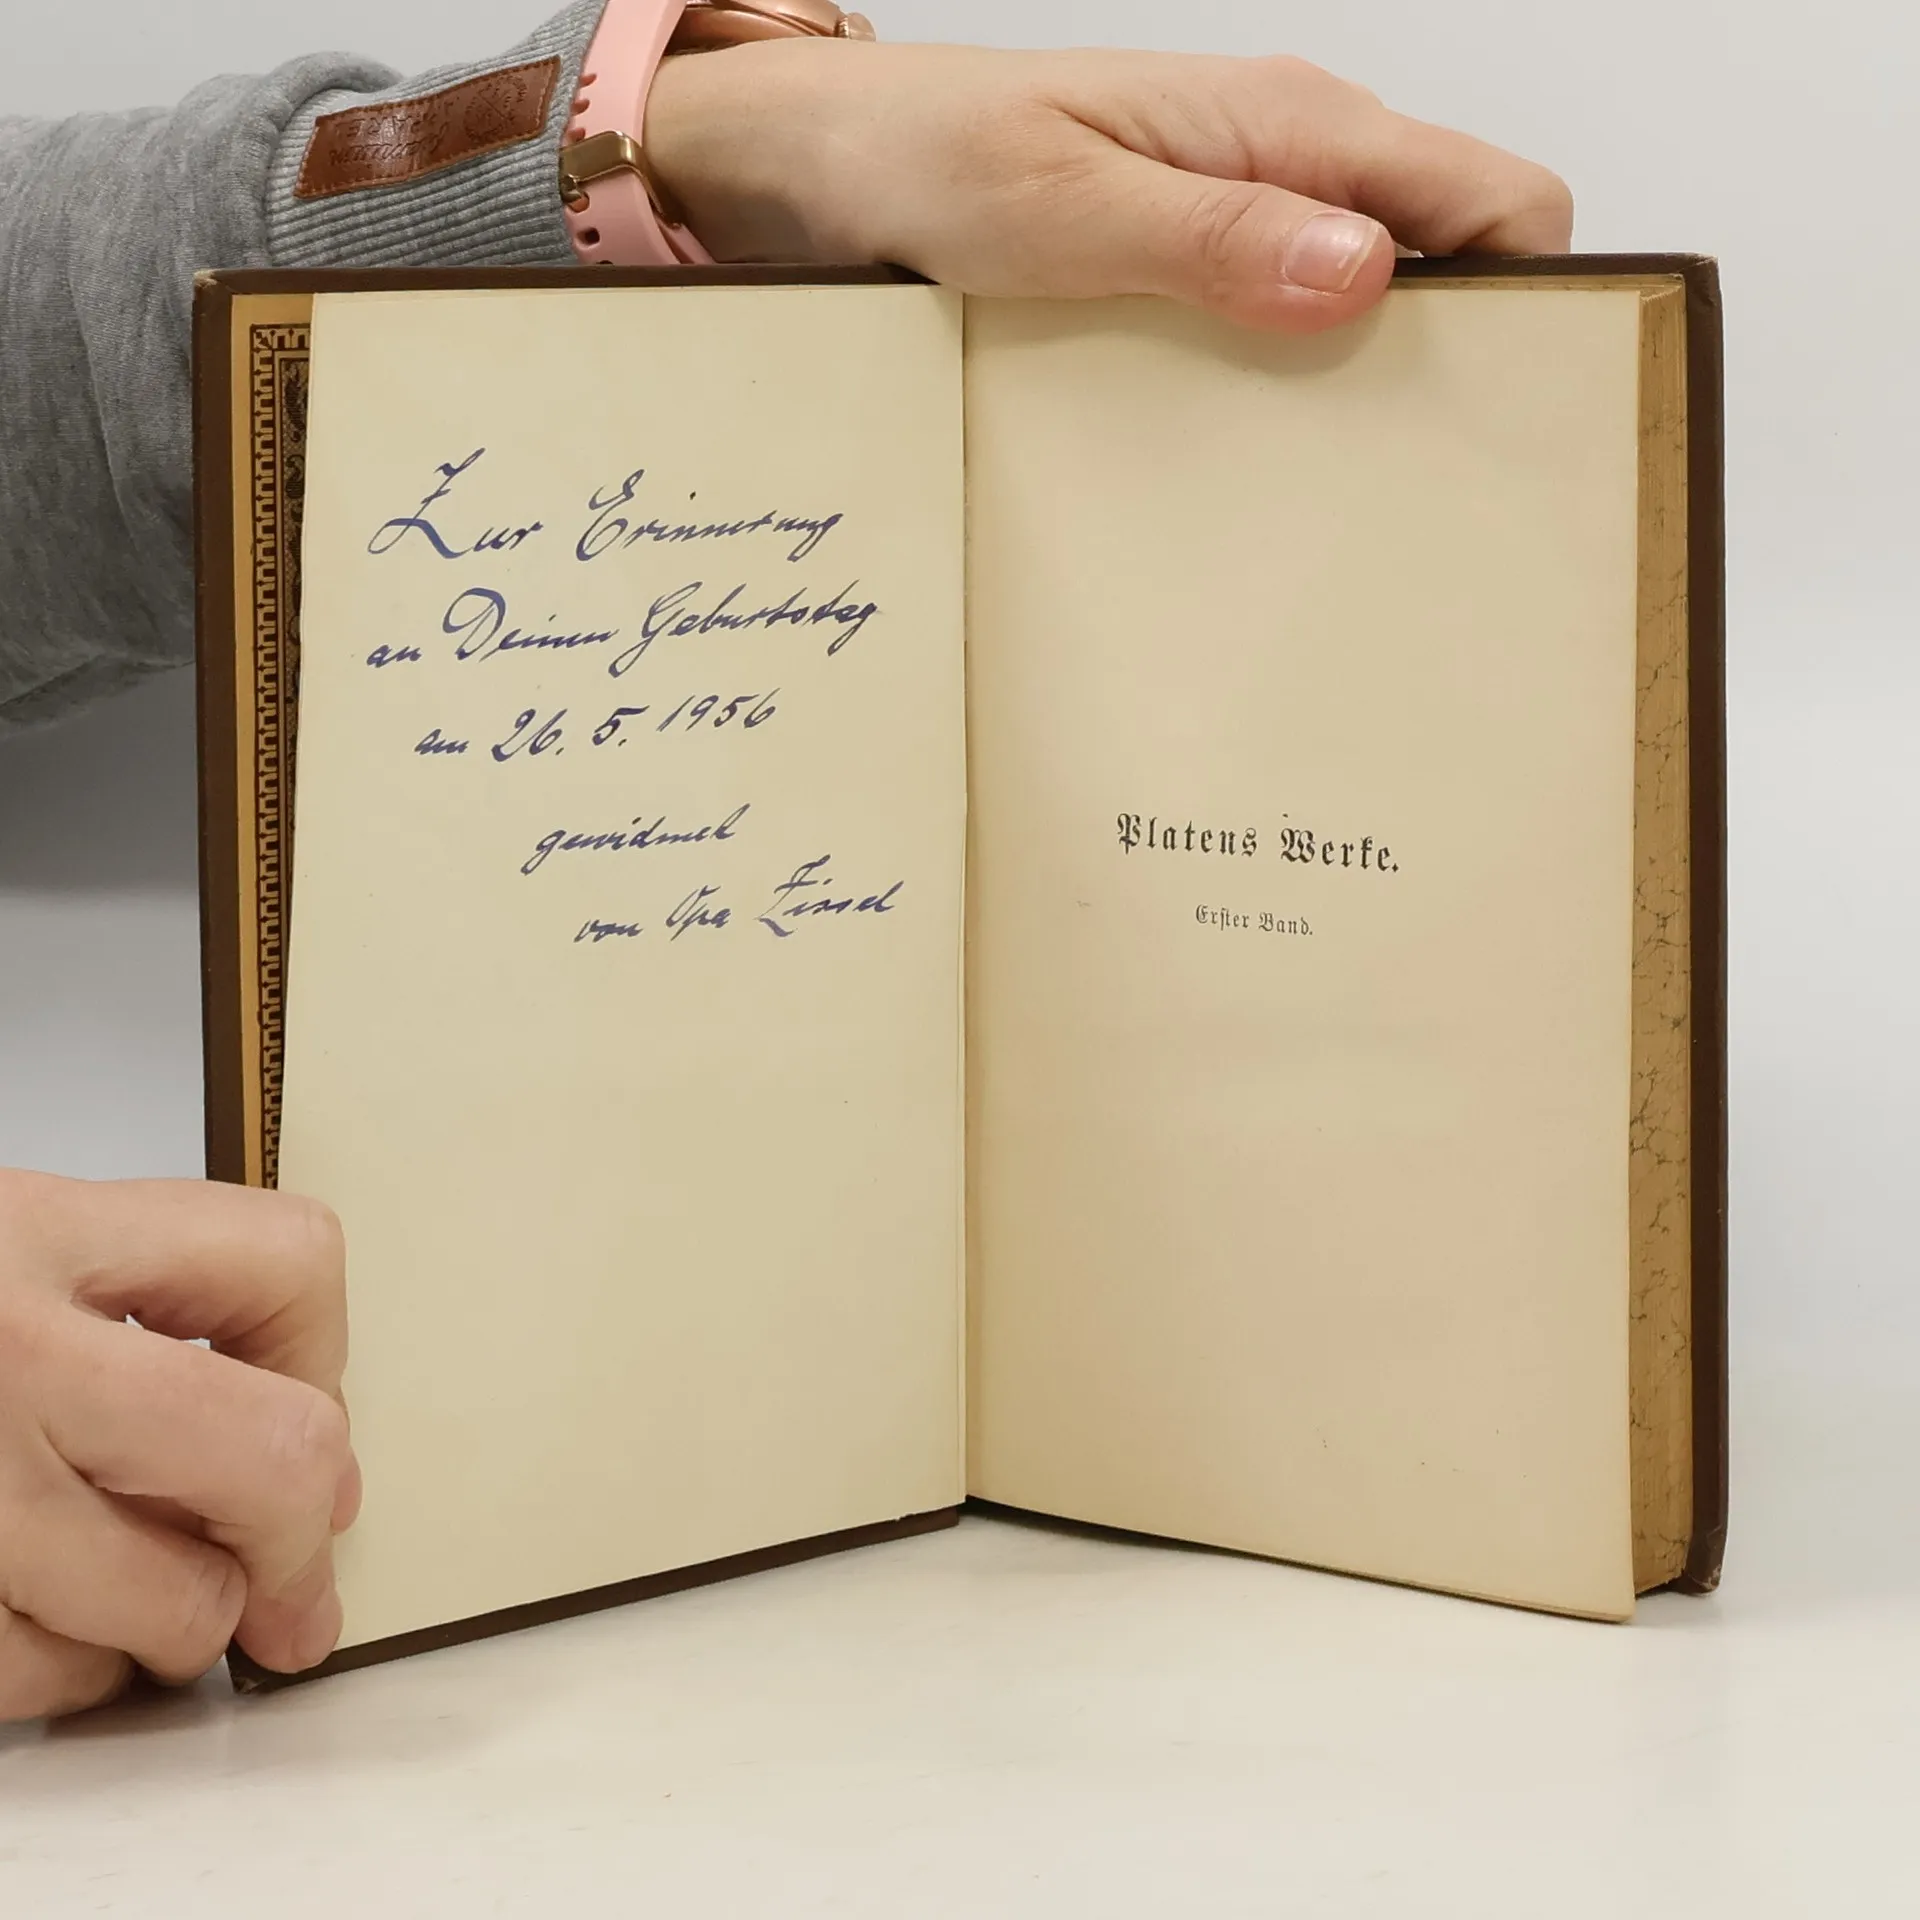 Zur Erinnerung
an Deinen Geburtstag
am 26. 5. 1956
gewidmet
von Opa Zissel
Platens Werke.
Erster Band.